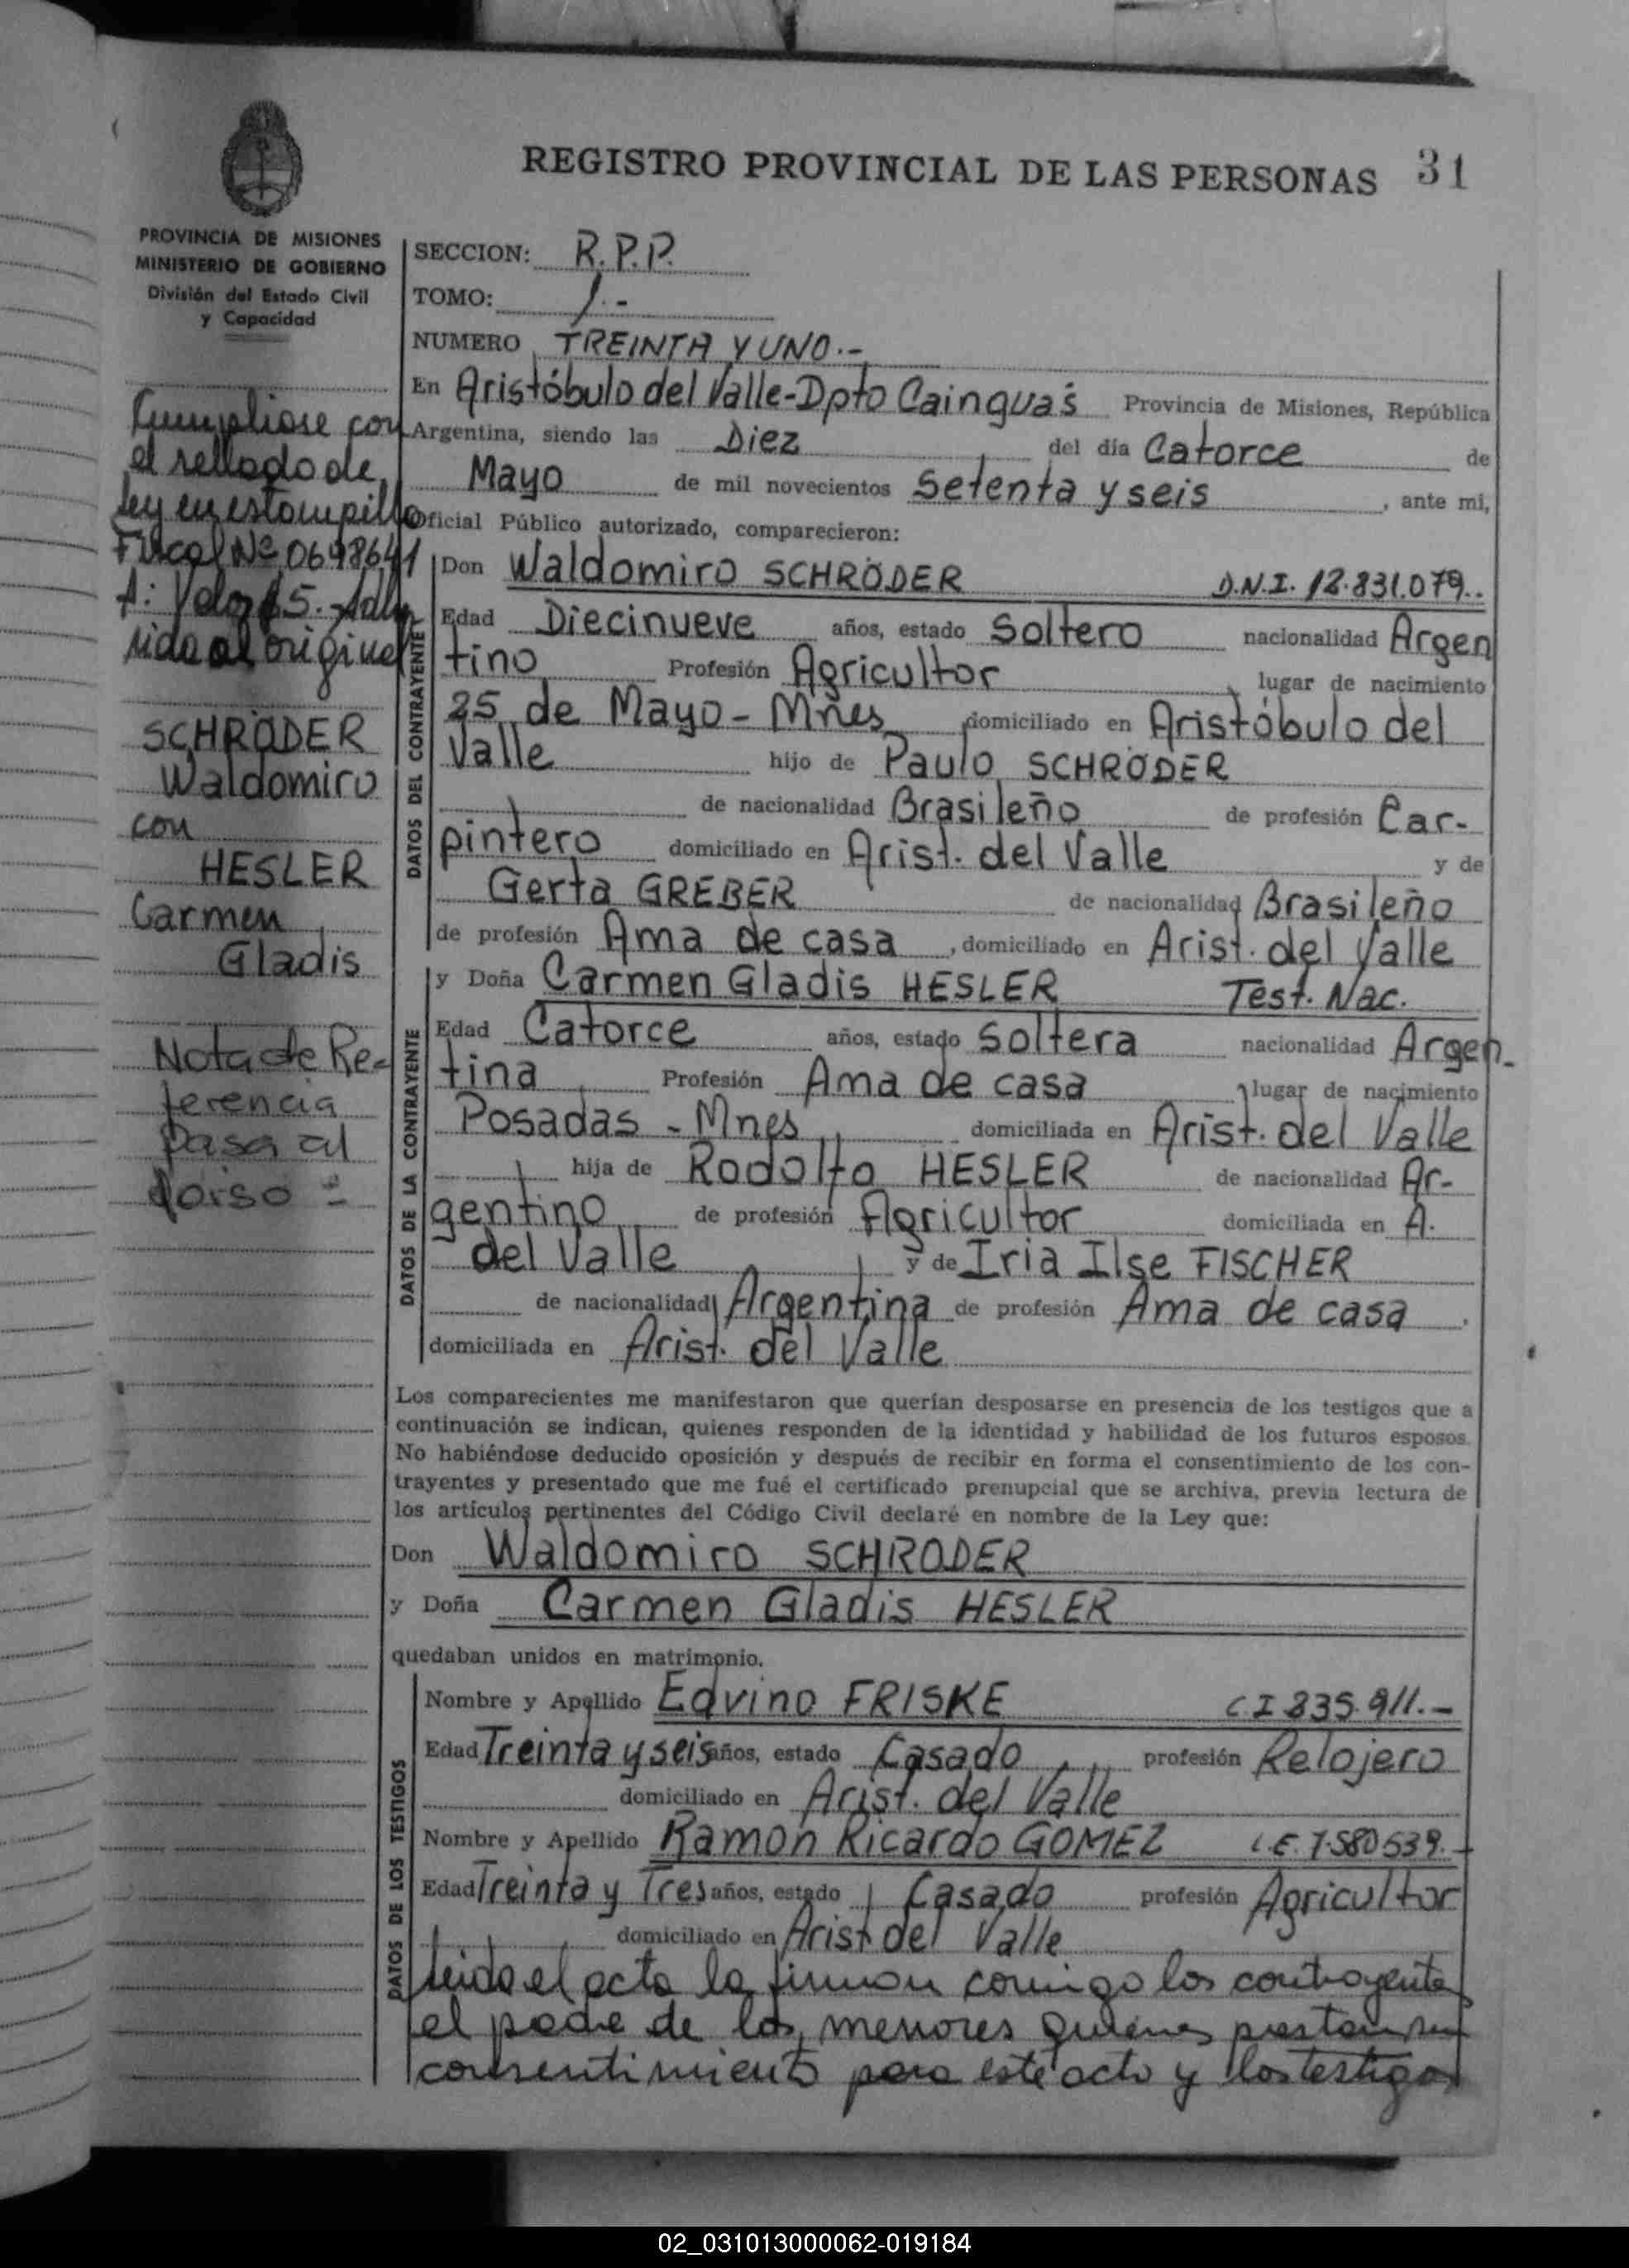 REGISTRO PROVINCIAL DE LAS PERSONAS 31
PROVINCIA DE MISIONES
MINISTERIO DE GOBIERNO
División del Estado Civil
y Capacidad
Cumpliose con
el sellado de
ley en estampilla
Fiscal Nº 0698641
A: Valor $5. Adhe
rida al original
SCHRÖDER
Waldomiro
con
HESLER
Carmen
Gladis
Nota de Re-
ferencia
pasa al
dorso =
SECCION: R.P.P.
TOMO: 1.-
NUMERO TREINTA Y UNO.-
En Aristóbulo del Valle-Dpto Cainguás Provincia de Misiones, República
Argentina, siendo las Diez del día Catorce de
Mayo de mil novecientos Setenta y seis, ante mi,
Oficial Público autorizado, comparecieron:
DATOS DEL CONTRAYENTE
Don Waldomiro SCHRÖDER D.N.I. 12.831.079..
Edad Diecinueve años, estado Soltero nacionalidad Argen
tino Profesión Agricultor, lugar de nacimiento
25 de Mayo - Mnes domiciliado en Aristóbulo del
Valle hijo de Paulo SCHRÖDER
de nacionalidad Brasileño de profesión Car-
pintero domiciliado en Arist. del Valle y de
Gerta GREBER de nacionalidad Brasileño
de profesión Ama de casa, domiciliado en Arist. del Valle
DATOS DE LA CONTRAYENTE
y Doña Carmen Gladis HESLER Test. Nac.
Edad Catorce años, estado Soltera nacionalidad Argen-
tina Profesión Ama de casa, lugar de nacimiento
Posadas - Mnes domiciliada en Arist. del Valle
hija de Rodolfo HESLER de nacionalidad Ar-
gentino de profesión Agricultor domiciliada en A.
del Valle y de Iria Ilse FISCHER
de nacionalidad Argentina de profesión Ama de casa.
domiciliada en Arist. del Valle
Los comparecientes me manifestaron que querían desposarse en presencia de los testigos que a
continuación se indican, quienes responden de la identidad y habilidad de los futuros esposos.
No habiéndose deducido oposición y después de recibir en forma el consentimiento de los con-
trayentes y presentado que me fué el certificado prenupcial que se archiva, previa lectura de
los artículos pertinentes del Código Civil declaré en nombre de la Ley que:
Don Waldomiro SCHRODER
y Doña Carmen Gladis HESLER
quedaban unidos en matrimonio.
DATOS DE LOS TESTIGOS
Nombre y Apellido Edvino FRISKE C.I 835.911.-
Edad Treinta y seis años, estado Casado profesión Relojero
domiciliado en Arist. del Valle
Nombre y Apellido Ramon Ricardo GOMEZ L.E. 7.580539.-
Edad Treinta y Tres años, estado Casado profesión Agricultor
domiciliado en Arist del Valle
Leido el acta la firman conmigo los contrayentes
el padre de los menores quienes prestan su
consentimiento para este acto y los testigos
02_031013000062-019184